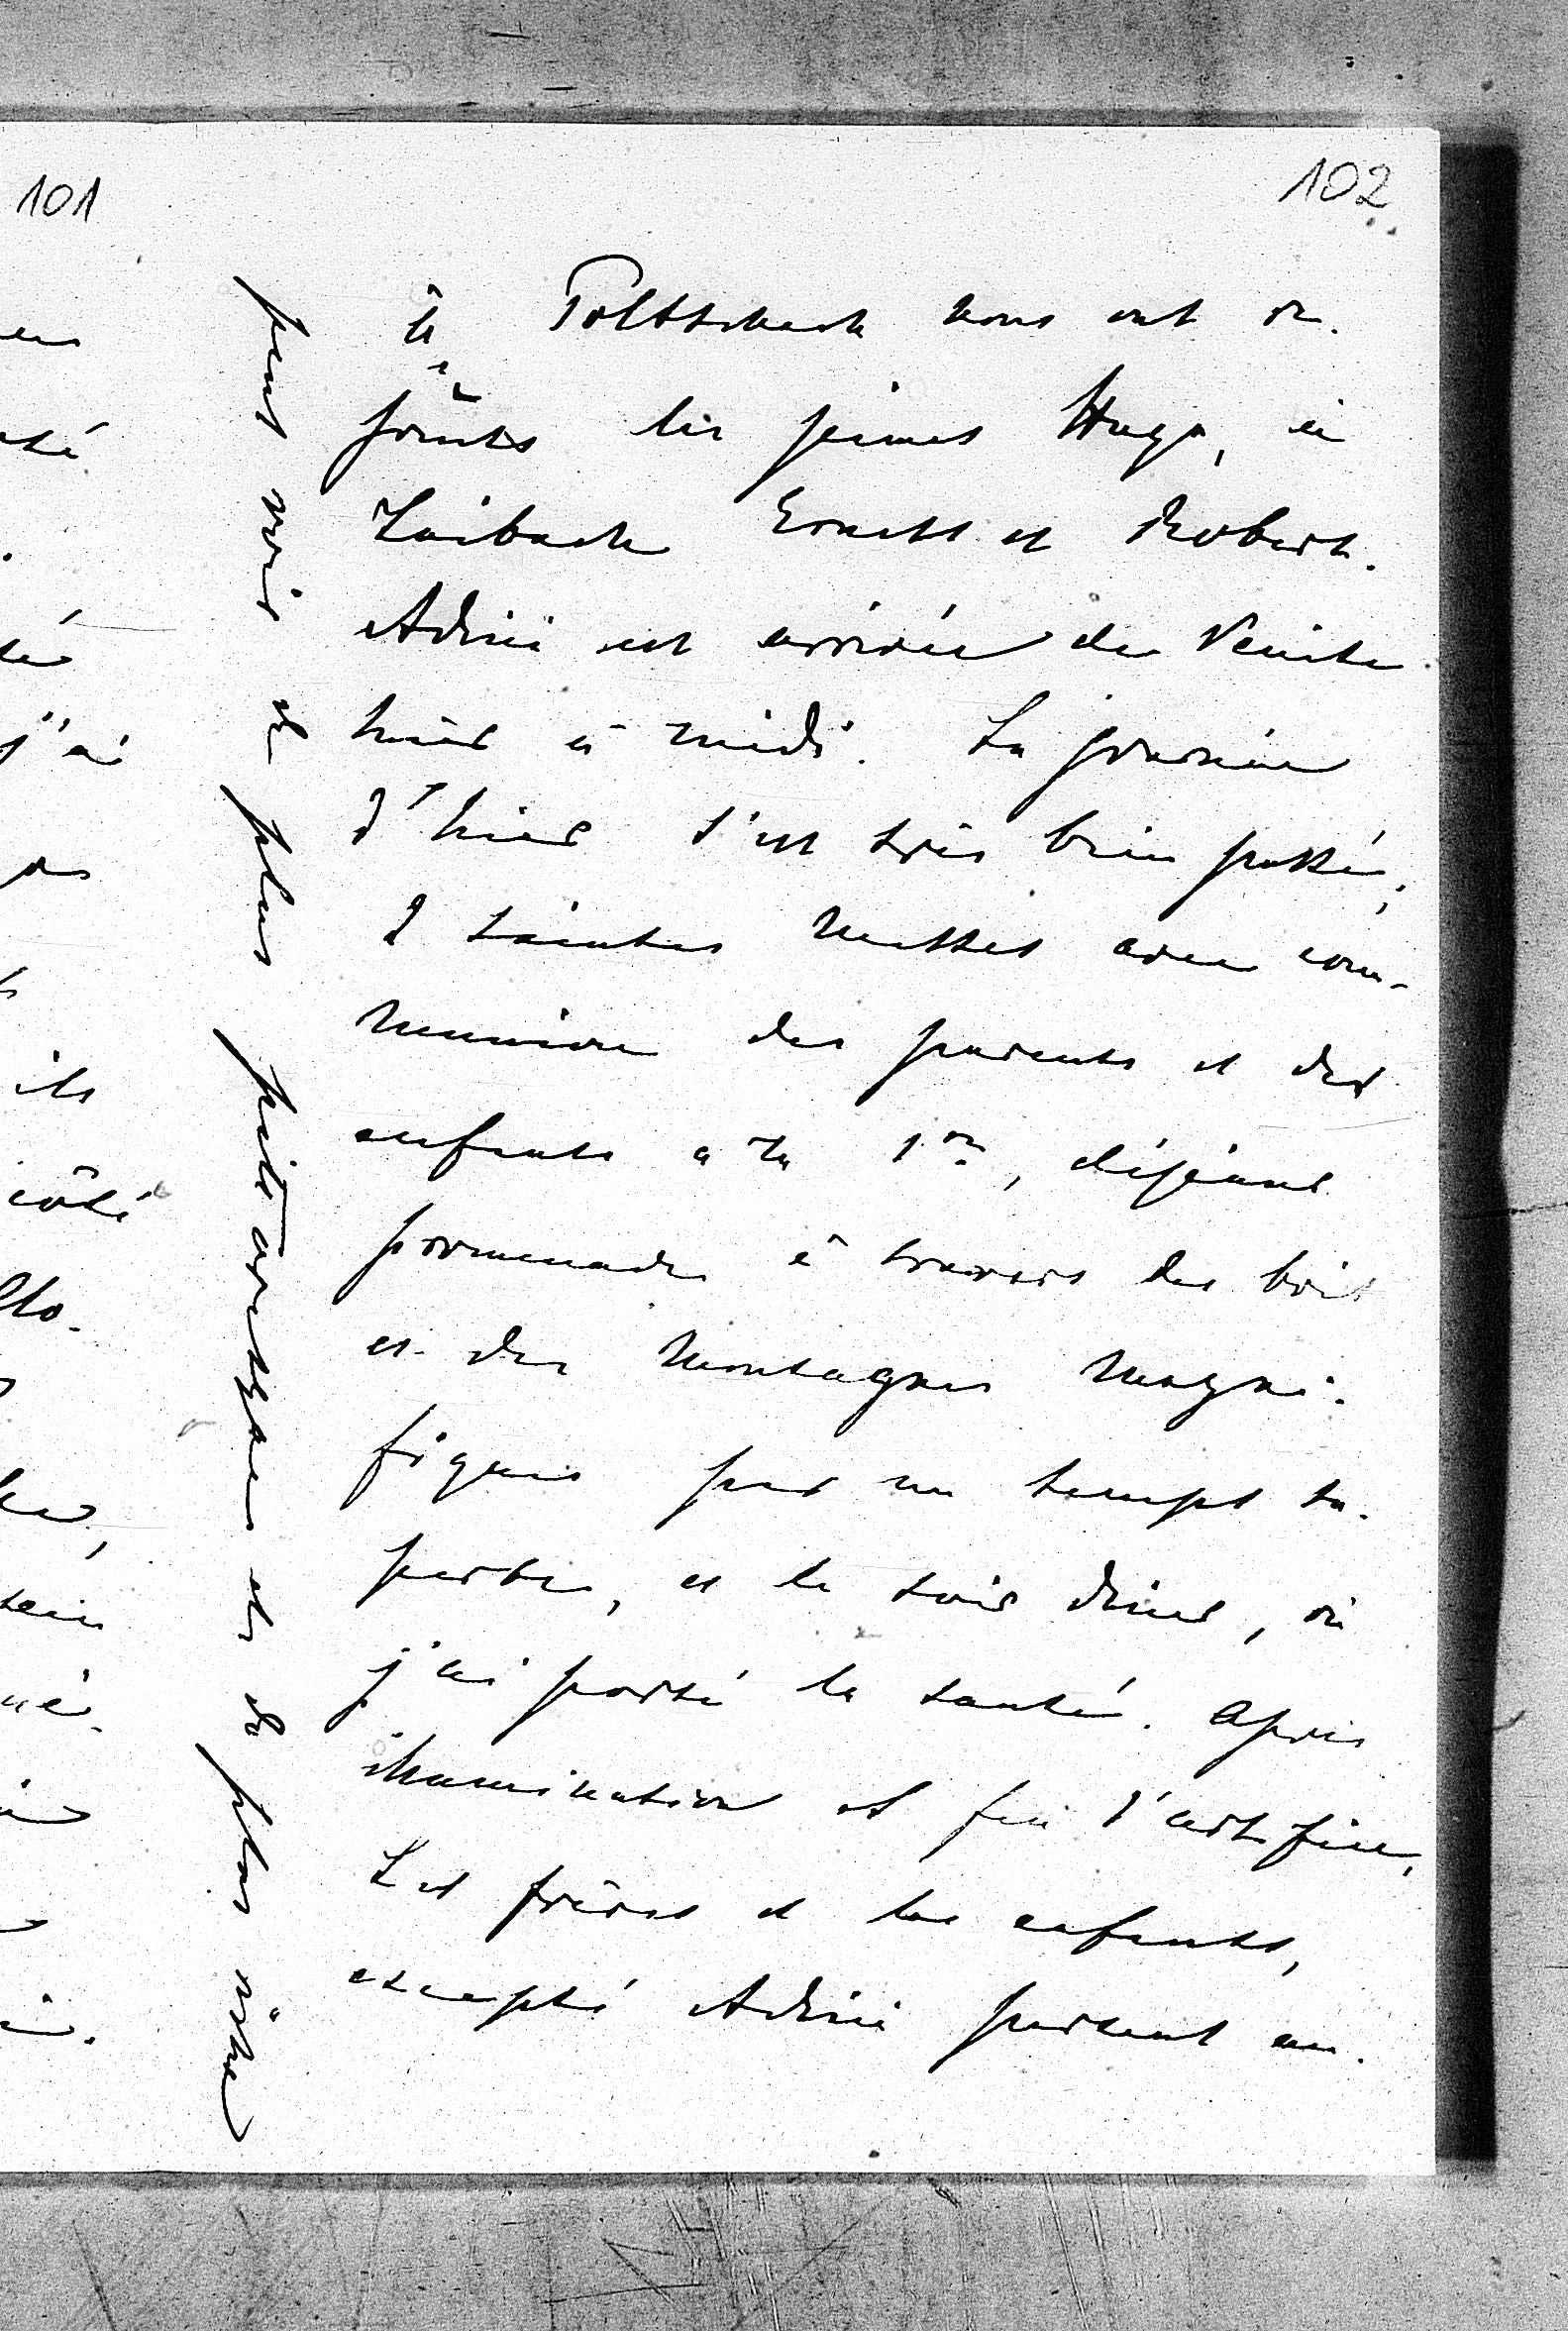 101
102
à Poltschach nous ont re-
joints les jeunes Hugo, à
Laibach Ernest et Robert.
Adini est arrivée de Venise
hier à midi. La journée
d'hier s'est très bien passé,
2 saintes messes avec com-
munion des parents et des
enfants a la 1re, déjeuner
promenade à travers des bois
et des montagnes magni-
fiques par un temps su-
perbe, et le soir diner, où
j'ai porté la santé. Après
illumination et feu d'artifice,
Les frères et les enfants,
excepté Adini partent au-
peut voir de plus pittoresque et de plus riche
j'ai
ils
côté